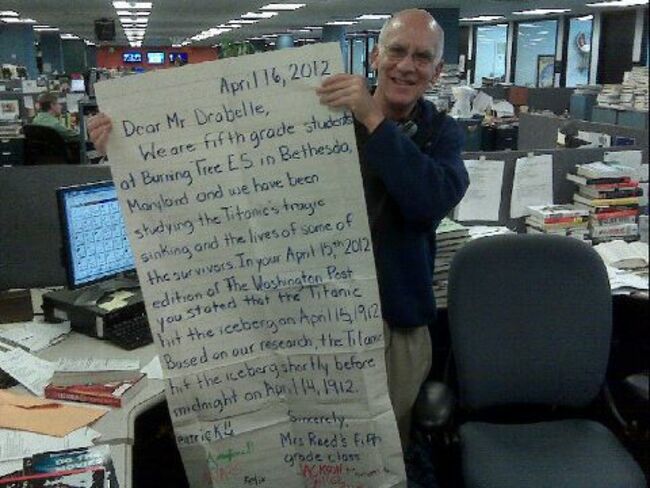 April 16, 2012
Dear Mr Drabelle,
We are fifth grade students
at Burning Tree E.S. in Bethesda,
Maryland and we have been
studying the Titanic's tragic
sinking and the lives of some of
the survivors. In your April 15,th 2012
edition of The Washington Post
you stated that the Titanic
hit the iceberg on April 15, 1912
Based on our research, the Titanic
hit the iceberg shortly before
midnight on April 14, 1912.
Sincerely,
Mrs Reed's fifth
grade class
Patrick
Felix
JACKSON